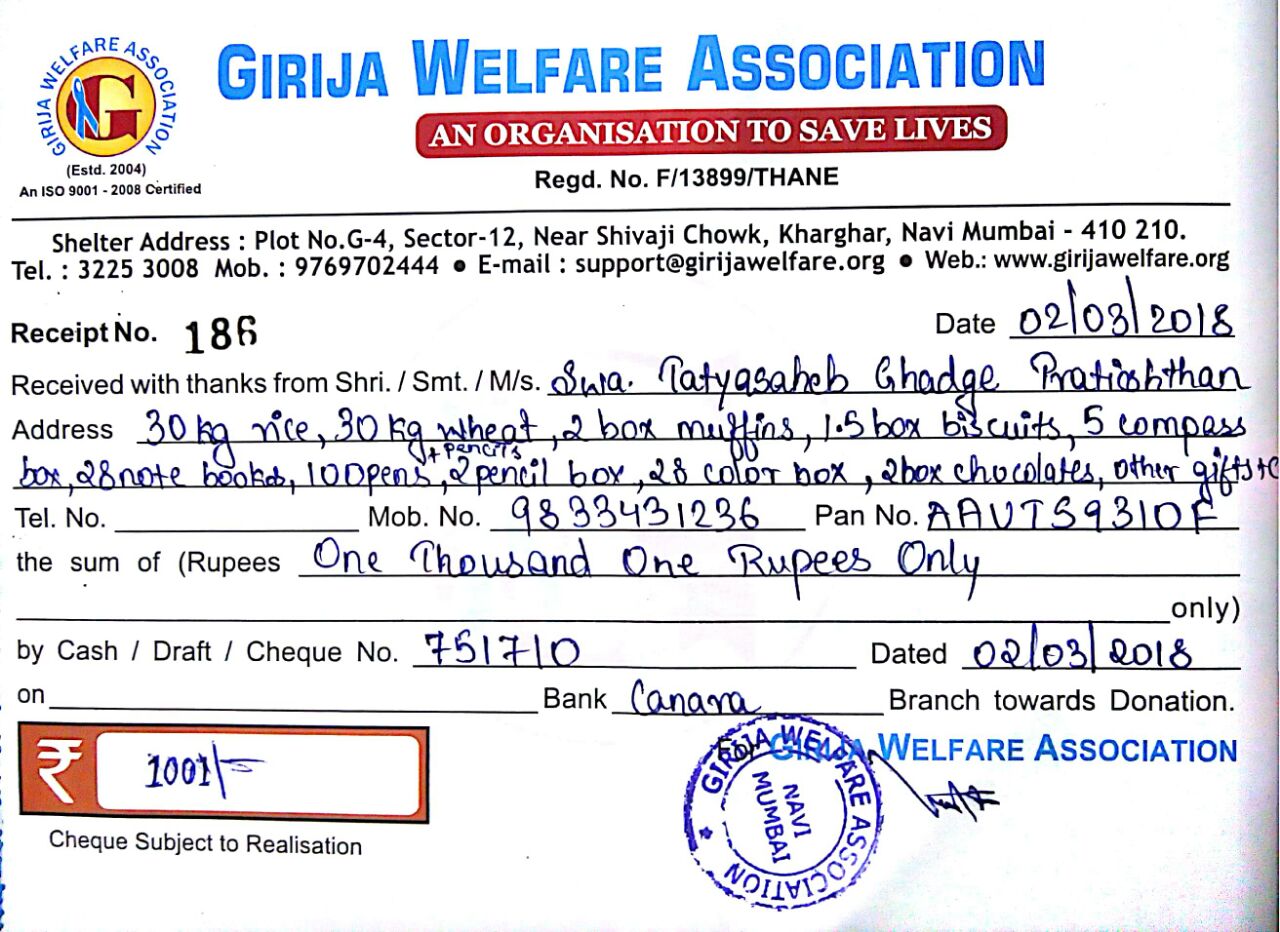 GIRIJA WELFARE ASSOCIATION
G
(Estd. 2004)
An ISO 9001 - 2008 Certified
GIRIJA WELFARE ASSOCIATION
AN ORGANISATION TO SAVE LIVES
Regd. No. F/13899/THANE
Shelter Address : Plot No.G-4, Sector-12, Near Shivaji Chowk, Kharghar, Navi Mumbai - 410 210.
Tel. : 3225 3008 Mob. : 9769702444 ● E-mail : support@girijawelfare.org ● Web.: www.girijawelfare.org
Receipt No. 186 Date 02/03/2018
Received with thanks from Shri. / Smt. / M/s. Swa. Tatyasaheb Ghadge Pratishthan
Address 30 kg rice, 30 kg wheat, 2 box muffins, 1.5 box biscuits, 5 compass
+ pencils
box, 28 note books, 100 pens, 2 pencil box, 28 color box, 2 box chocolates, other gifts
Tel. No. Mob. No. 9833431236 Pan No. AAUTS9310F
the sum of (Rupees One Thousand One Rupees Only
only)
by Cash / Draft / Cheque No. 751710 Dated 02/03/2018
on Bank Canara Branch towards Donation.
₹ 1001/-
For GIRIJA WELFARE ASSOCIATION
Cheque Subject to Realisation
GIRIJA WELFARE ASSOCIATION
NAVI
MUMBAI